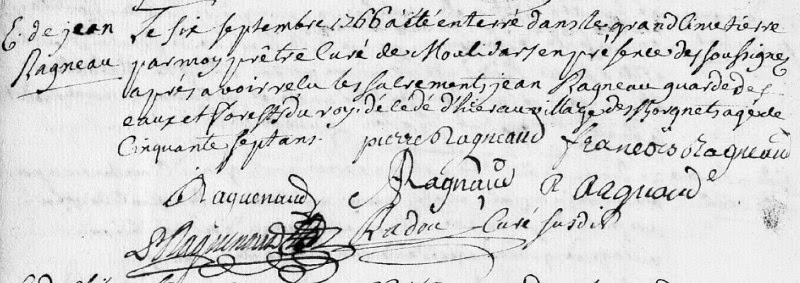 E. de jean
Ragneau
Le six septembre 1766 a été enterré dans le grand Cimetierre
par moy prêtre Curé de Moulidars en presence des soussignes
après avoir reçu les sacrements jean Ragneau guarde des
eaux et Forests du roy décédé d'hier au village des agé de
Cinquante sept ans. pierre Ragneaud francois Ragneaud
Raguenaud Ragnaud R Aragnaud
Raguenaud Radou Curé susdit